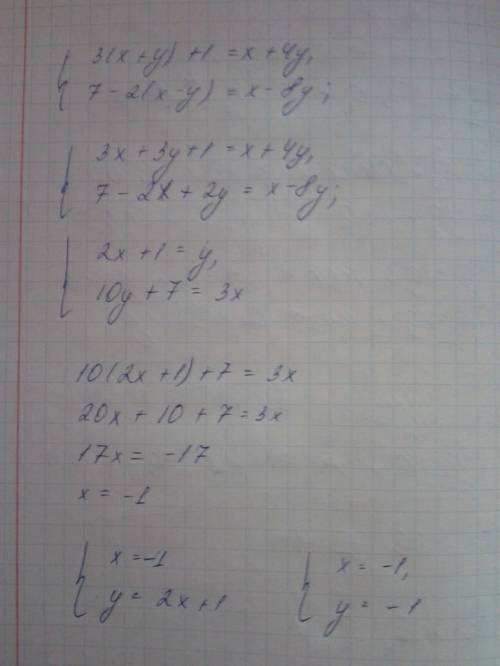 3(x+y)+1 = x+4y,
7-2(x-y) = x-8y;
3x+3y+1 = x+4y,
7-2x+2y = x-8y;
2x+1 = y,
10y+7 = 3x
10(2x+1)+7 = 3x
20x+10+7=3x
17x = -17
x = -1
x=-1 x = -1,
y = 2x+1 y = -1